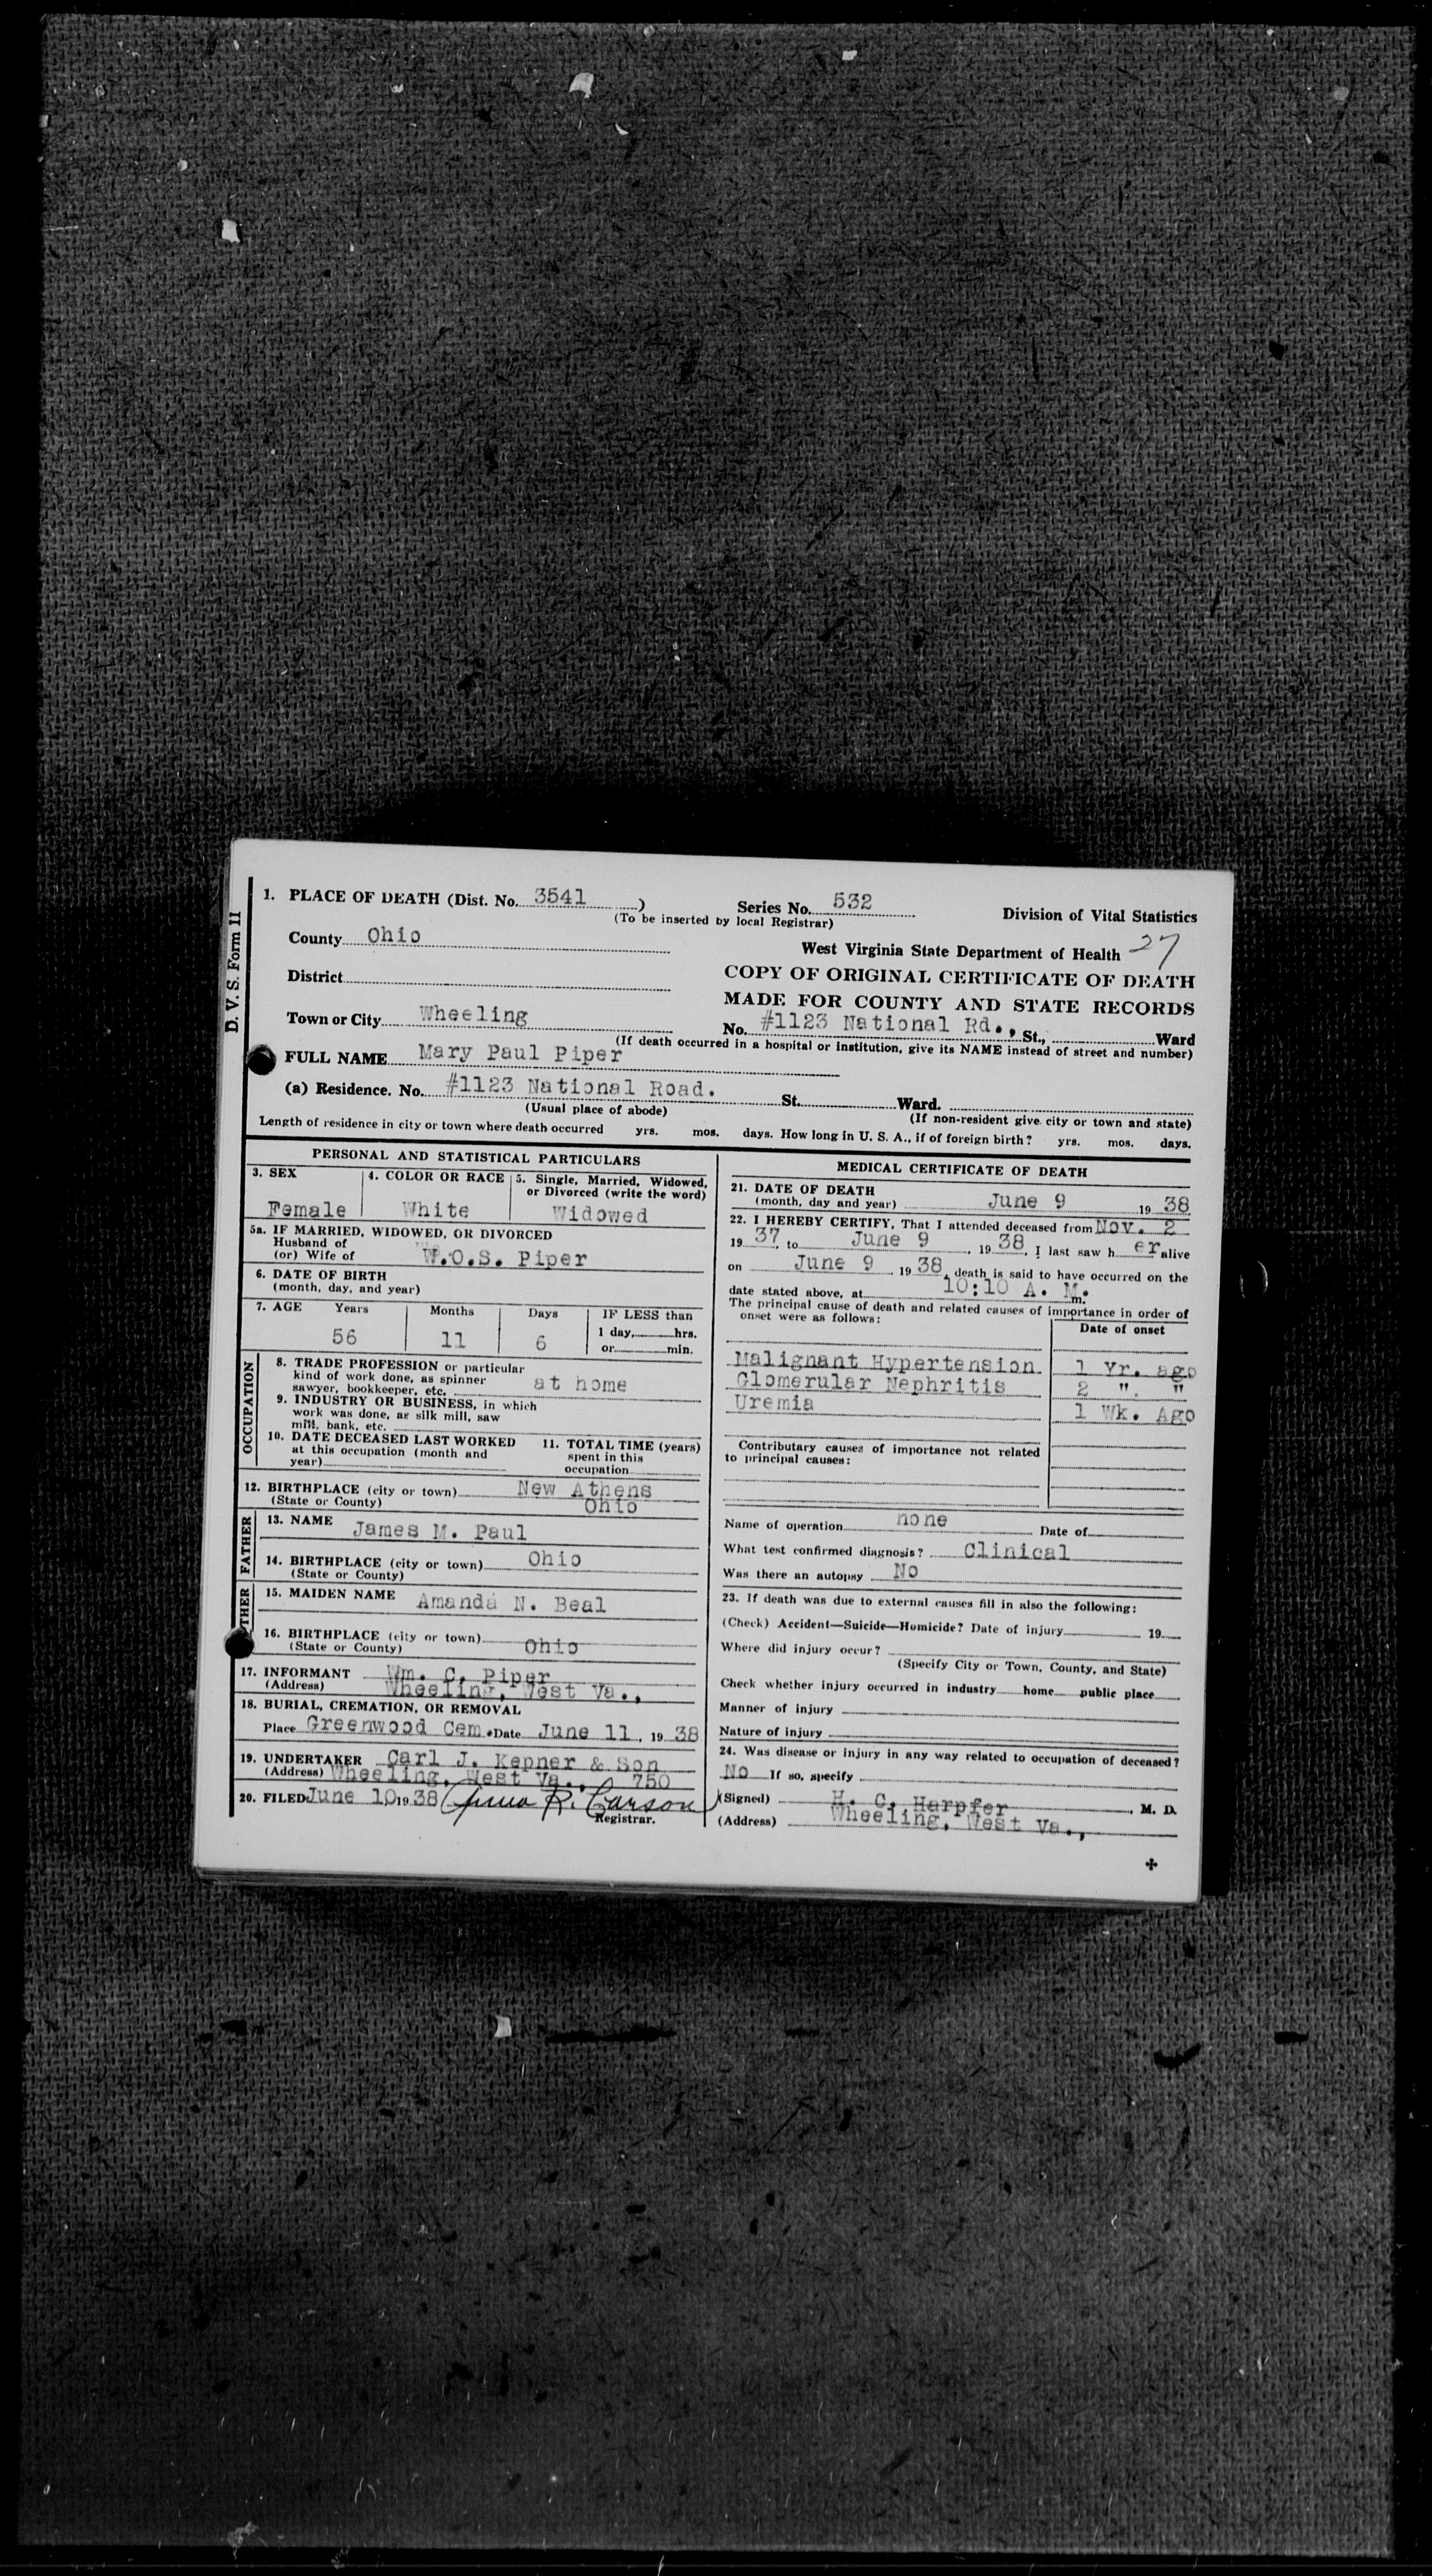 D. V. S. Form 11
1. PLACE OF DEATH (Dist. No. 3541 )
(To be inserted by local Registrar)
Series No. 532
Division of Vital Statistics
County Ohio
West Virginia State Department of Health 27
District
COPY OF ORIGINAL CERTIFICATE OF DEATH
MADE FOR COUNTY AND STATE RECORDS
Town or City Wheeling
No. #1123 National Rd., St., Ward
(If death occurred in a hospital or institution, give its NAME instead of street and number)
FULL NAME Mary Paul Piper
(a) Residence. No. #1123 National Road. St. Ward.
(Usual place of abode)
(If non-resident give city or town and state)
Length of residence in city or town where death occurred yrs. mos. days. How long in U. S. A., if of foreign birth? yrs. mos. days.
PERSONAL AND STATISTICAL PARTICULARS
3. SEX
Female
4. COLOR OR RACE
White
5. Single, Married, Widowed,
or Divorced (write the word)
Widowed
5a. IF MARRIED, WIDOWED, OR DIVORCED
Husband of
(or) Wife of W.O.S. Piper
6. DATE OF BIRTH
(month, day, and year)
7. AGE Years Months Days IF LESS than
1 day, hrs.
56 11 6 or min.
OCCUPATION
8. TRADE PROFESSION or particular
kind of work done, as spinner
sawyer, bookkeeper, etc. at home
9. INDUSTRY OR BUSINESS, in which
work was done, as silk mill, saw
mill, bank, etc.
10. DATE DECEASED LAST WORKED
at this occupation (month and
year)
11. TOTAL TIME (years)
spent in this
occupation
12. BIRTHPLACE (city or town) New Athens
(State or County) Ohio
FATHER
13. NAME James M. Paul
14. BIRTHPLACE (city or town) Ohio
(State or County)
THER
15. MAIDEN NAME Amanda N. Beal
16. BIRTHPLACE (city or town)
(State or County) Ohio
17. INFORMANT Wm. C. Piper
(Address) Wheeling, West Va.,
18. BURIAL, CREMATION, OR REMOVAL
Place Greenwood Cem. Date June 11, 19 38
19. UNDERTAKER Carl J. Kepner & Son
(Address) Wheeling, West Va., 750
20. FILED June 10 19 38 Anna R. Carson
Registrar.
MEDICAL CERTIFICATE OF DEATH
21. DATE OF DEATH
(month, day and year) June 9 19 38
22. I HEREBY CERTIFY, That I attended deceased from Nov. 2
19 37, to June 9, 19 38, I last saw h er alive
on June 9 19 38, death is said to have occurred on the
date stated above, at 10:10 A. M. m.
The principal cause of death and related causes of importance in order of
onset were as follows:
Date of onset
Malignant Hypertension 1 Yr. ago
Glomerular Nephritis 2 ". "
Uremia 1 Wk. Ago
Contributory causes of importance not related
to principal causes:
Name of operation none Date of
What test confirmed diagnosis? Clinical
Was there an autopsy No
23. If death was due to external causes fill in also the following:
(Check) Accident—Suicide—Homicide? Date of injury 19
Where did injury occur?
(Specify City or Town, County, and State)
Check whether injury occurred in industry home public place
Manner of injury
Nature of injury
24. Was disease or injury in any way related to occupation of deceased?
No If so, specify
(Signed) H. C. Harpfer, M. D.
(Address) Wheeling, West Va.,